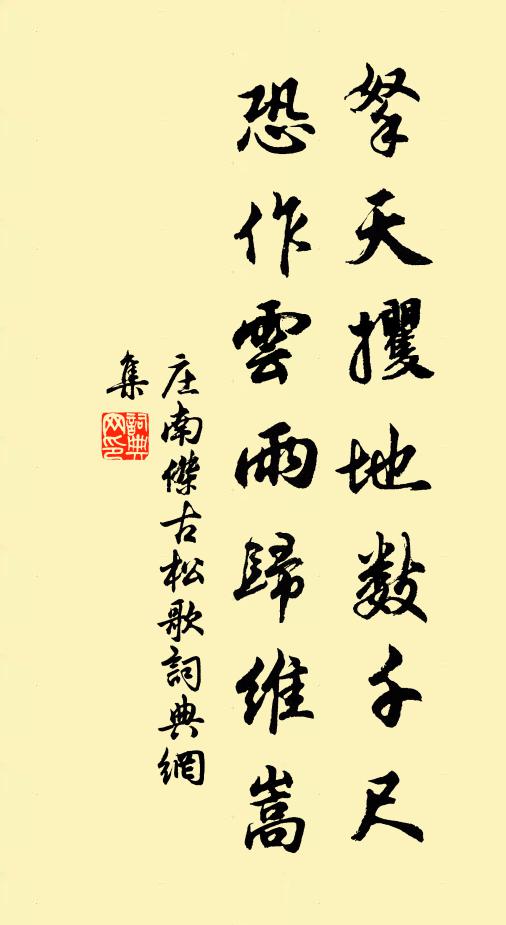 拏天攫地数千尺
恐作雲雨歸維嵩
庄南傑古松歌詞典網
集
詞典
网印